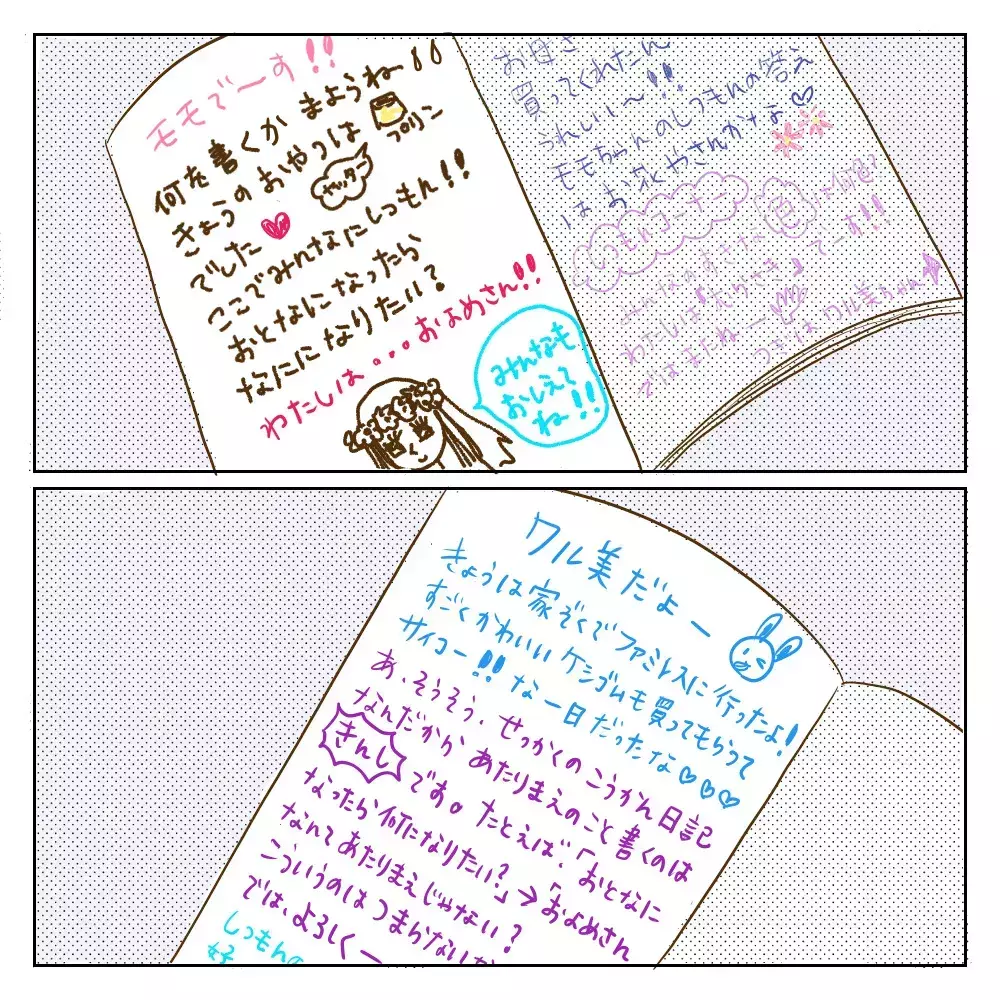 モモでーす!!
何を書くか まようねー!!
きょうの おやつは プリン
ヤッター
でした
ここでみんなにしつもん!!
おとなになったら
なにになりたい?
わたしは...およめさん!!
みんなも
おしえて
ね!!
お母さ
買ってくれたん
うれしい〜!!
モモちゃんのしつもんの答え
はお花やさんかなな♡
しつもんコーナー
みんなのすきな色は何色?
わたしは『 でーす!!
ではまたねー
つぎは ワル美ちゃん
ワル美だよー
きょうは家ぞくでファミレスに行ったよ!
すごくかわいいケシゴムも買ってもらって
サイコー!!な一日だったな♡♡♡
あ、そうそう、せっかくのこうかん日記
なんだから あたりまえのこと書くのは
きんし です。たとえば、「おとなに
なったら何になりたい?」→「およめさん
なんてあたりまえじゃない?
こういうのはつまらない
では、よろしくー
しつもんの